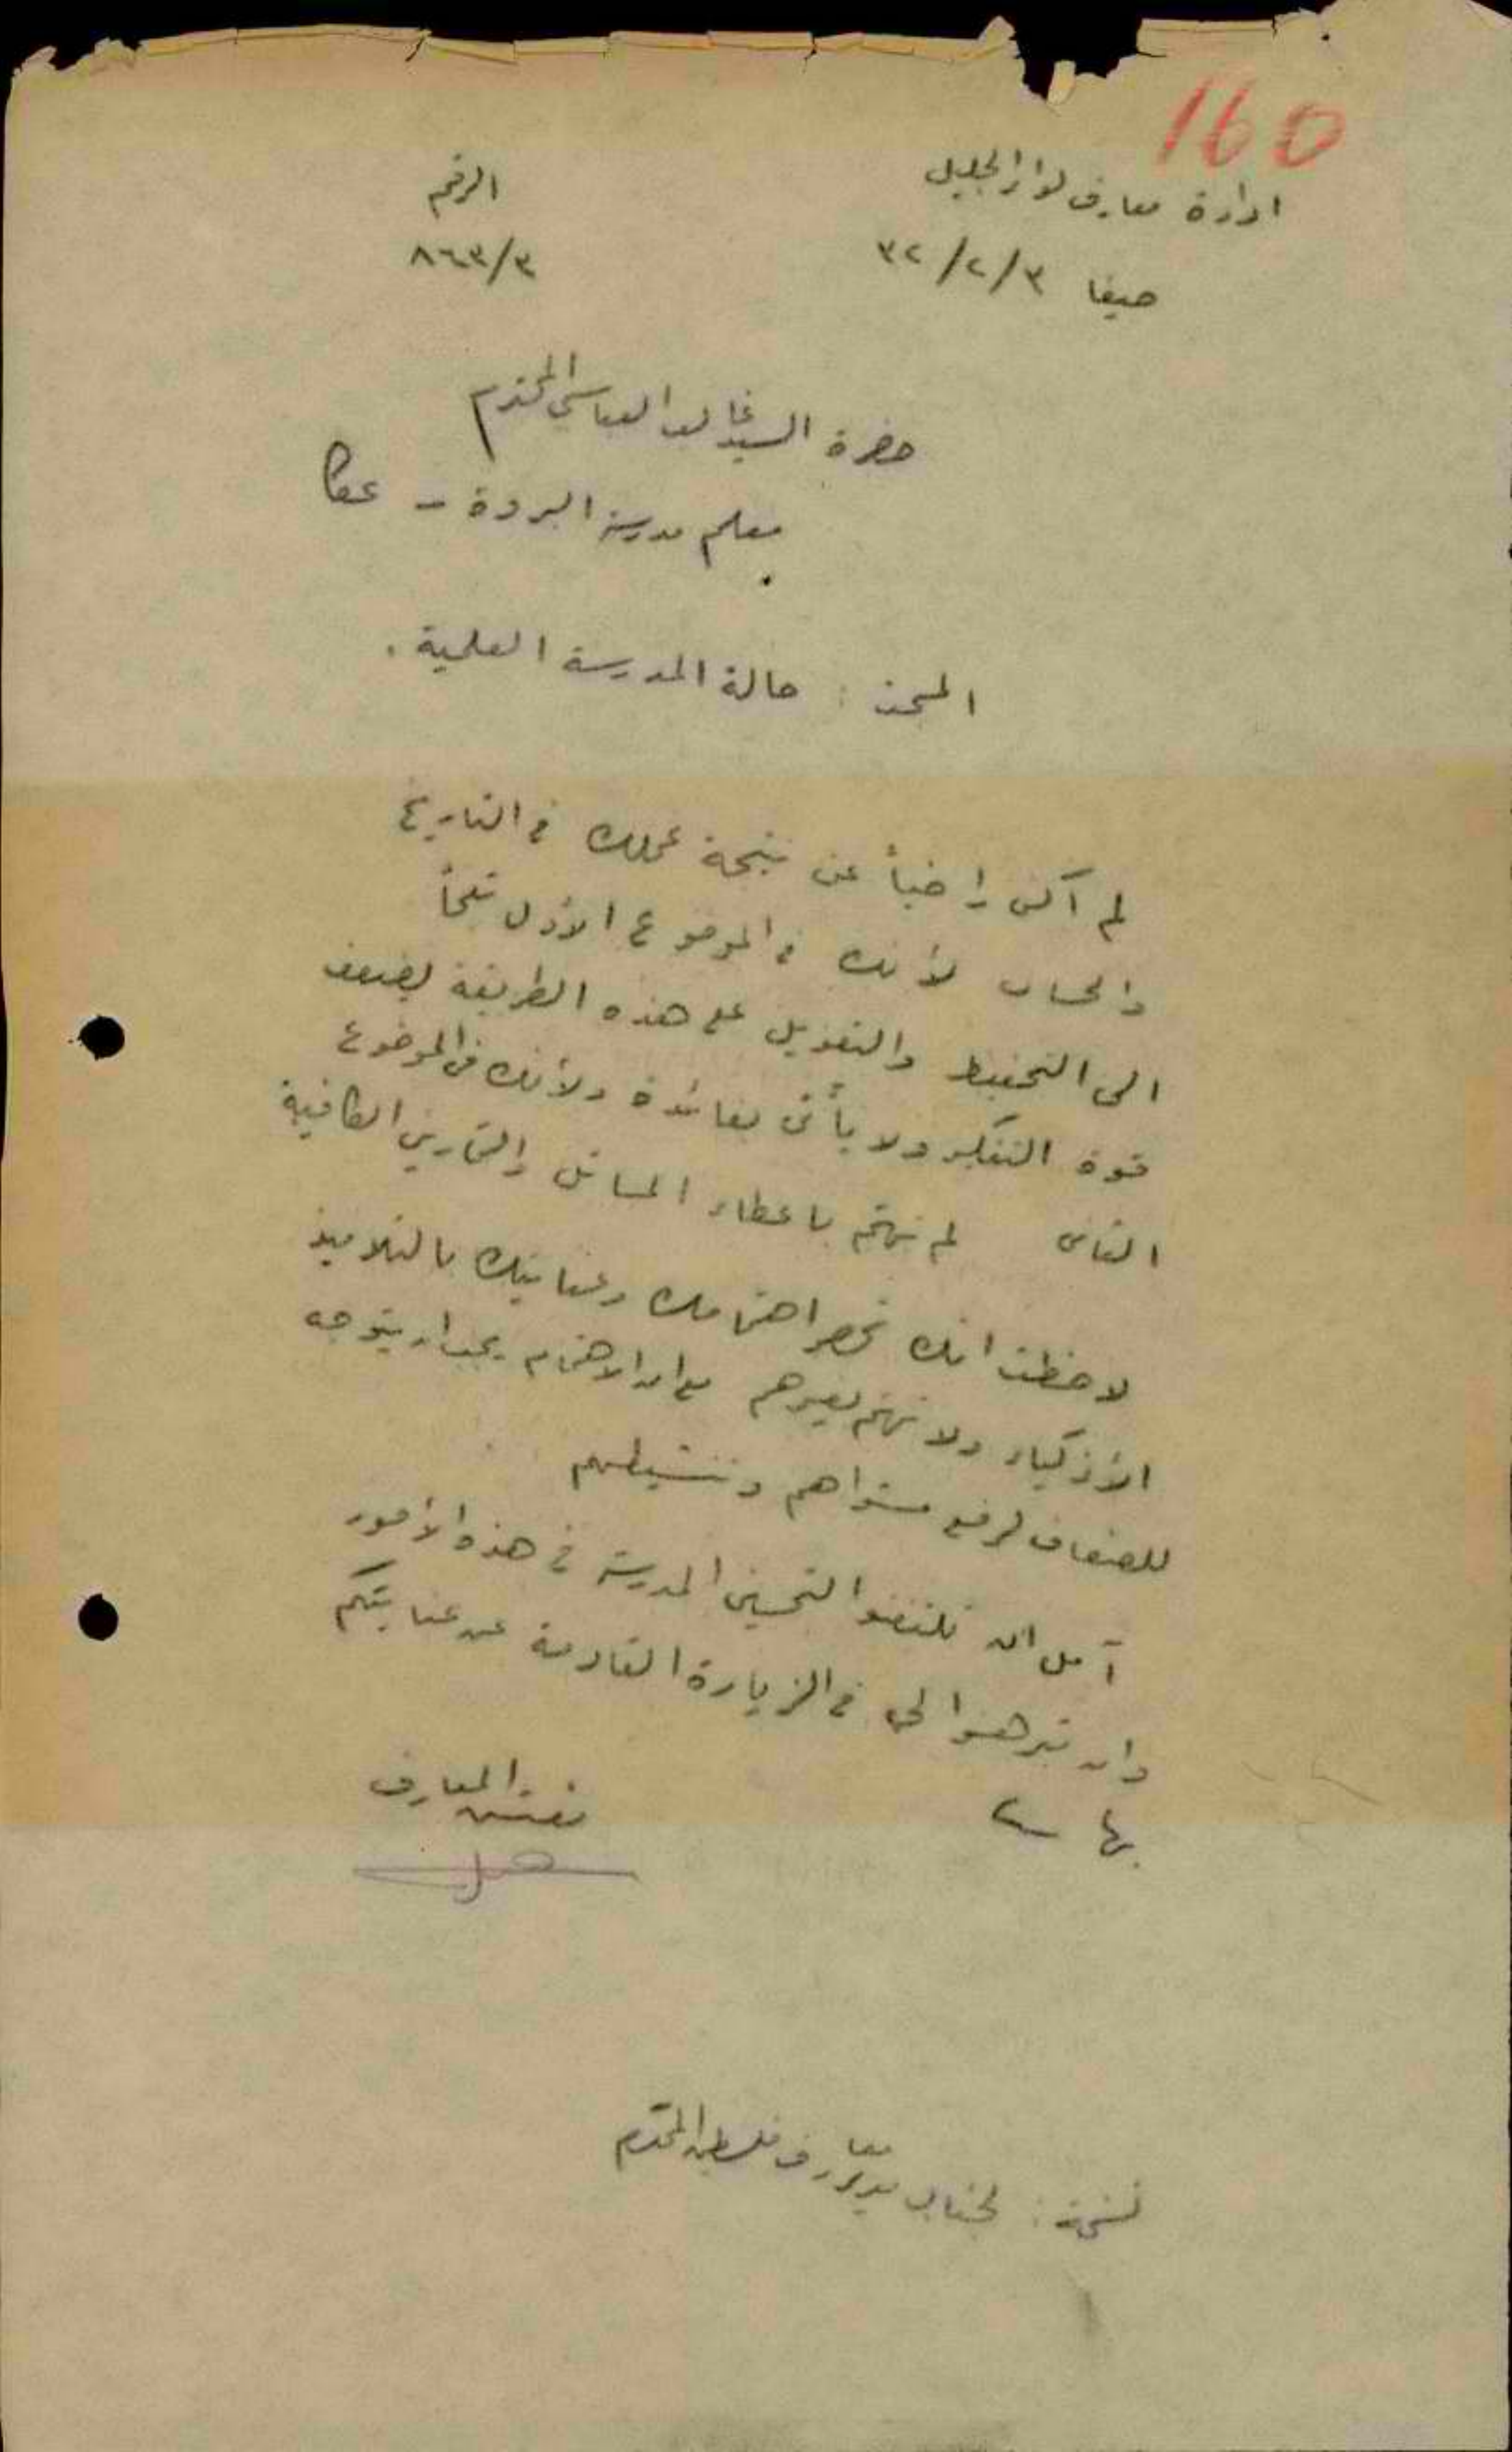 160
ادارة معارف لواء الجليل
الرقم
حيفا ٣/٢/٣٢
٨٦٣/٣
حضرة السيد غالب العباسي المحترم
معلم مدرسة البروة - عكا
المبحث : حالة المدرسة العلمية .
لم أكن راضياً عن نتيجة عملك في التاريخ
والحساب لأنك في الموضوع الأول تلجأ
الى التحفيظ والتعويل على هذه الطريقة يضعف
قوة التفكير ولا يأتي بفائدة ولأنك في الموضوع
الثاني لم تهتم باعطاء المسائل والتمارين الكافية
لاحظت انك تحصر اهتمامك وعنايتك بالتلاميذ
الأذكياء ولا تهتم بغيرهم مع ان الاهتمام يجب ان يتوجه
للضعاف لرفع مستواهم وتنشيطهم
آمل ان تلتفتوا لتحسين المدرسة في هذه الأمور
وان تبرهنوا لي في الزيارة القادمة عن عنايتكم
بها
مفتش المعارف
نسخة : لجناب مدير معارف فلسطين المحترم